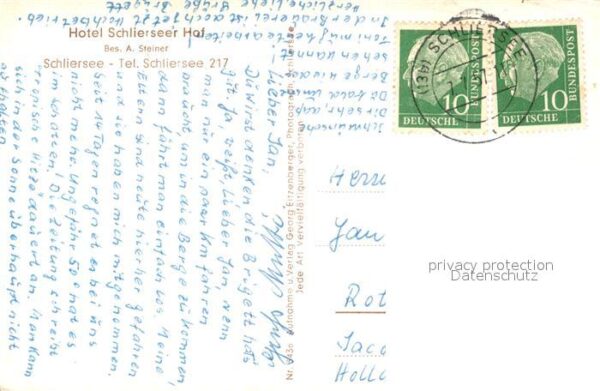 Hotel Schlierseer Hof
Bes. A. Steiner
Schliersee - Tel. Schliersee 217
Lieber Jan,
Du wirst denken die Brigett hats
gut. Ja weißt, lieber Jan, wenn
man nur ein paar Km fahren
braucht, um in die Berge zu kommen,
dann fährt man einfach los. Meine
Eltern sind heute hierher gefahren
und sie haben mich mitgenommen.
Seit 14 Tagen regnet es bei uns
nicht mehr. Ungefähr 50° hat es
im Schatten. Die Zeitung schreibt
tropische Hitze dauert an. Man kann
in der Sonne überhaupt nicht
aushalten.
Ich wünsche
Dir sehr, daß
Du bald unsere
Berge wieder
sehen kannst.
Toni muß heute arbeiten
In der Brauerei ist doch jetzt Hochbetrieb
Herzliche liebe Grüße
Brigett
Nr. 343 Aufnahme u. Verlag Georg Eitzenberger, Photograph, Schliersee
Jede Art Vervielfältigung verboten
(13b) SCHLIERSEE
10
DEUTSCHE
BUNDESPOST
10
DEUTSCHE
BUNDESPOST
Herrn
Jan
Rot
Jaco
Holla
privacy protection
Datenschutz